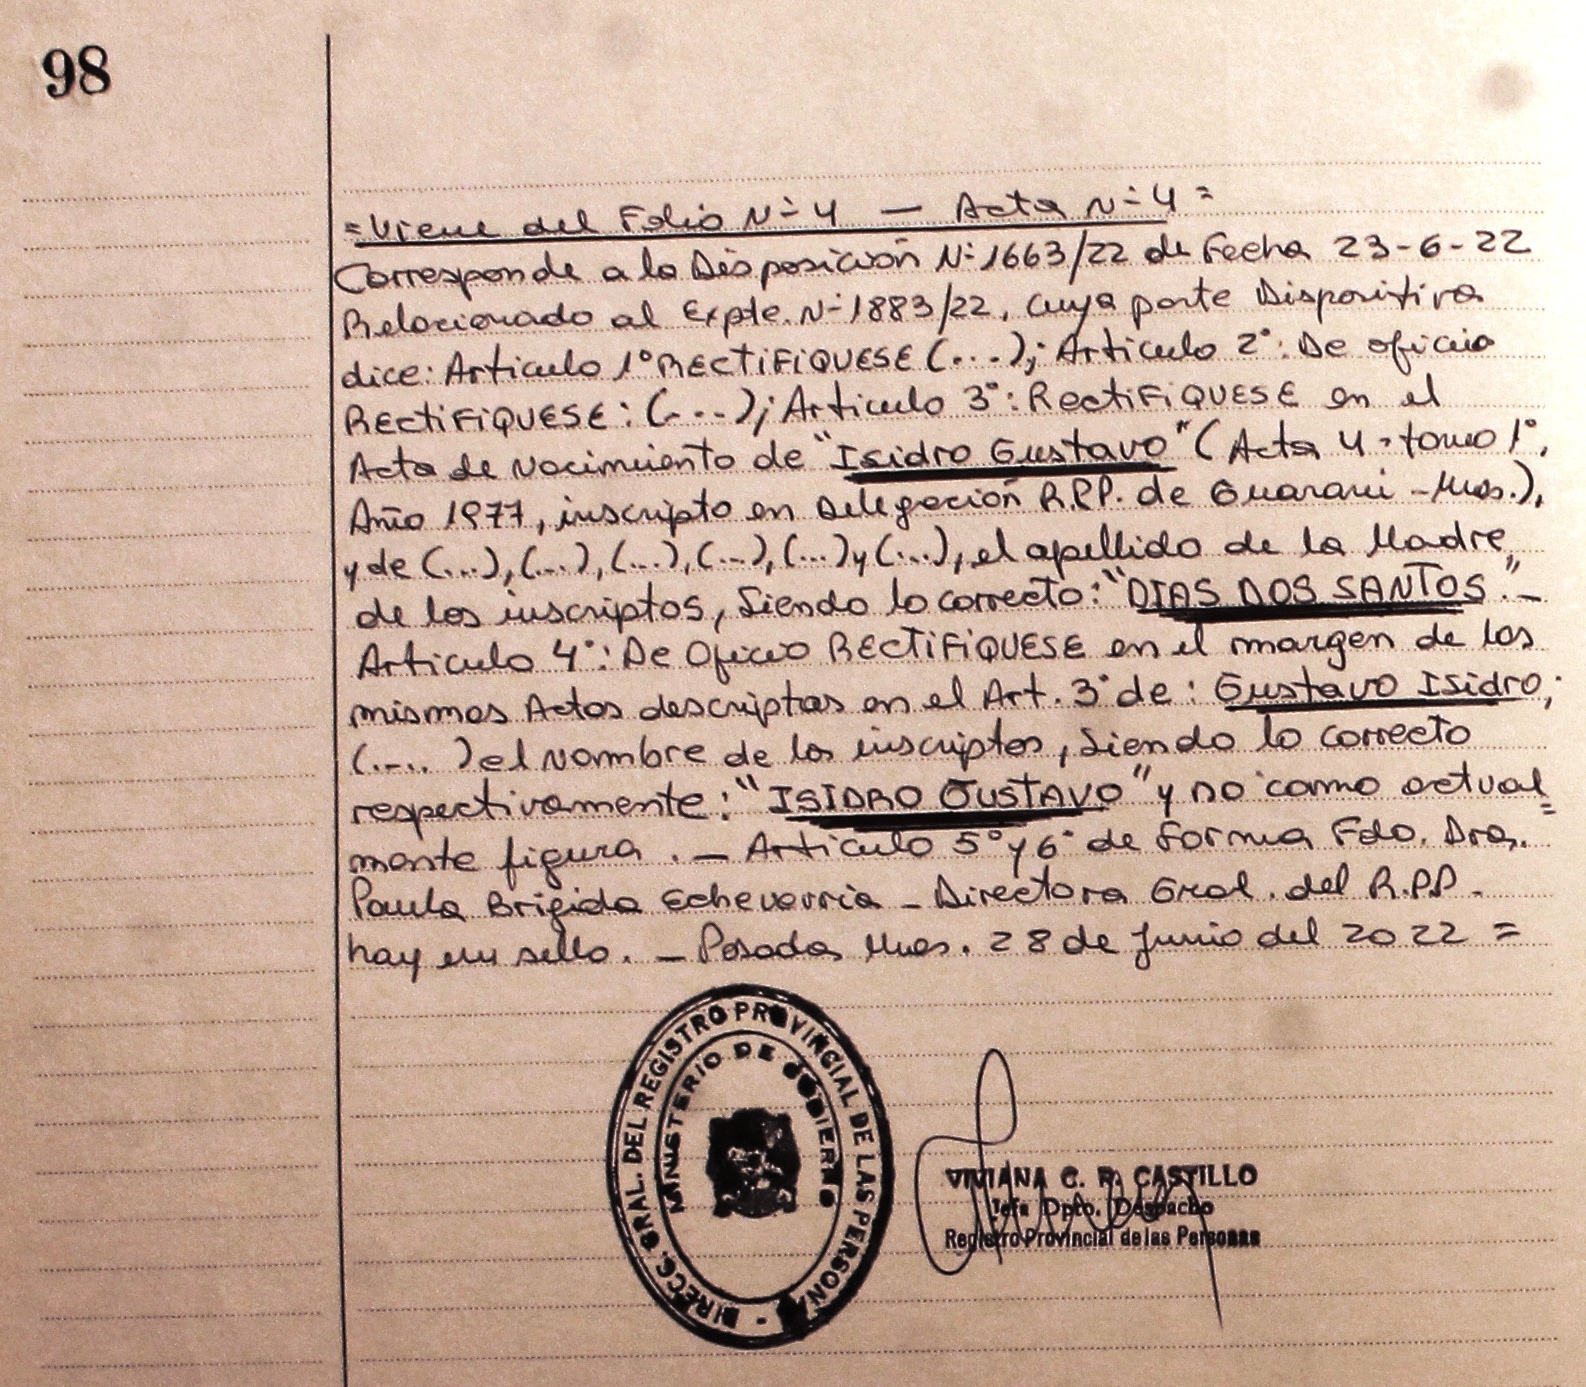 98
= Viene del Folio Nº 4 — Acta Nº 4 =
Corresponde a la Disposición Nº 1663/22 de Fecha 23-6-22
Relacionado al Expte. Nº 1883/22, cuya parte Dispositiva
dice: Articulo 1º RECTIFIQUESE (...); Articulo 2º: De oficio
RECTIFIQUESE: (...); Articulo 3º: RECTIFIQUESE en el
Acta de Nacimiento de "Isidro Gustavo" (Acta 4 - tomo 1º,
Año 1977, inscripto en Delegación R.P.P. de Guarani - Mnes.),
y de (...), (...), (...), (...), (...) y (...), el apellido de la Madre,
de los inscriptos, Siendo lo correcto: "DIAS DOS SANTOS".-
Articulo 4º: De Oficio RECTIFIQUESE en el margen de las
mismas Actas descriptas en el Art. 3º de: Gustavo Isidro;
(....) el Nombre de los inscriptos, Siendo lo correcto
respectivamente: "ISIDRO GUSTAVO" y no como actual=
mente figura. — Articulo 5º y 6º de Forma Fdo. Dra.
Paula Brigida Echevarria - Directora Gral. del R.P.P.
hay un sello. — Posadas Mnes. 28 de Junio del 2022 =
DIRECC. GRAL. DEL REGISTRO PROVINCIAL DE LAS PERSONAS -
MINISTERIO DE GOBIERNO
VIVIANA C. R. CASTILLO
Jefa Dpto. Despacho
Registro Provincial de las Personas